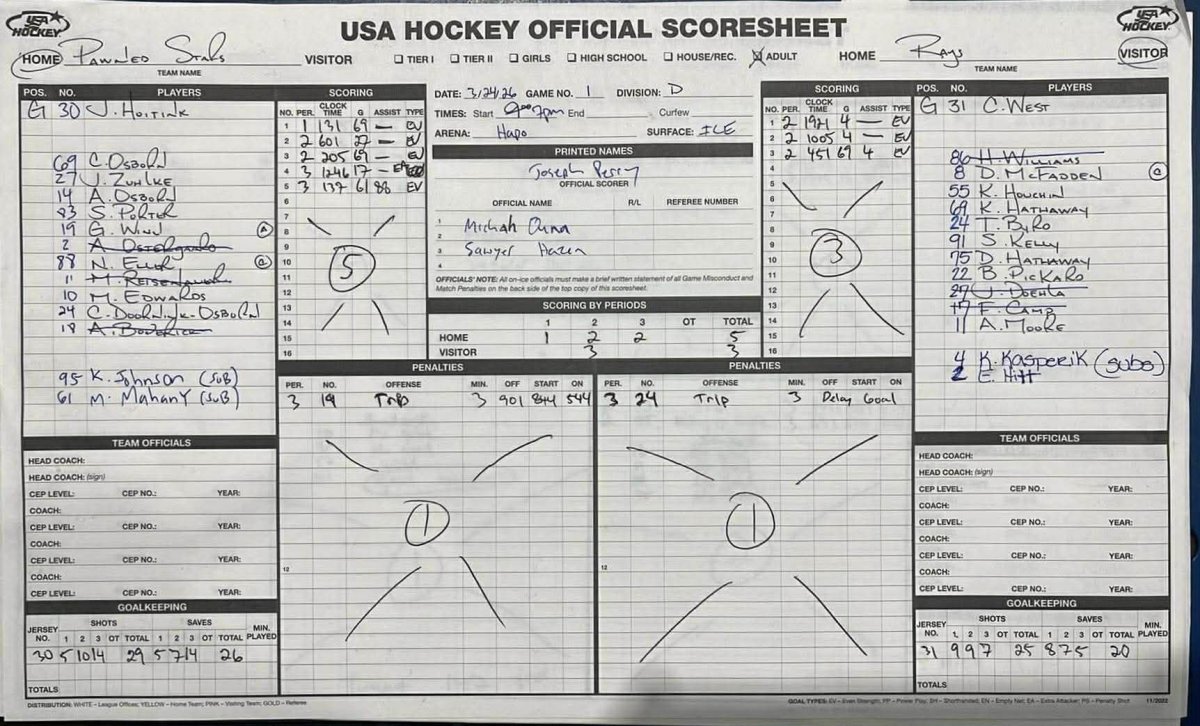 USA HOCKEY
USA HOCKEY OFFICIAL SCORESHEET
USA HOCKEY
HOME Pawneo Stars VISITOR
TEAM NAME
☐ TIER I ☐ TIER II ☐ GIRLS ☐ HIGH SCHOOL ☐ HOUSE/REC. ☒ ADULT
HOME Rays VISITOR
TEAM NAME
POS. NO. PLAYERS
G 30 J. Hoitink
69 C. Osborn
27 J. Zuhlke
14 A. Osborn
83 S. Porter
19 G. Wind A
2 A. Ostergard
88 N. Eller @
11 M. Reisenauer
10 M. Edwards
24 C. Doornink-Osborn
18 A. Boderick
95 K. Johnson (SUB)
61 M. Mahany (SUB)
TEAM OFFICIALS
HEAD COACH:
HEAD COACH: (sign)
CEP LEVEL: CEP NO.: YEAR:
COACH:
CEP LEVEL: CEP NO.: YEAR:
COACH:
CEP LEVEL: CEP NO.: YEAR:
COACH:
CEP LEVEL: CEP NO.: YEAR:
GOALKEEPING
JERSEY NO. SHOTS SAVES MIN. PLAYED
1 2 3 OT TOTAL 1 2 3 OT TOTAL
30 5 10 14 29 5 7 14 26
TOTALS
SCORING
NO. PER. CLOCK TIME G ASSIST TYPE
1 1 131 69 — EV
2 2 601 27 — EV
3 2 205 69 — EV
4 3 1246 17 —
5 3 137 61 88 EV
6
7
8
9
10
11
12
13
14
15
16
5
DATE: 3/24/26 GAME NO. 1 DIVISION: D
TIMES: Start 9:00 7pm End Curfew
ARENA: Hapo SURFACE: ICE
PRINTED NAMES
Joseph Perry
OFFICIAL SCORER
OFFICIAL NAME R/L REFEREE NUMBER
1 Michah
2
3 Sawyer Hazen
4
OFFICIALS' NOTE: All on-ice officials must make a brief written statement of all Game Misconduct and
Match Penalties on the back side of the top copy of this scoresheet.
SCORING BY PERIODS
1 2 3 OT TOTAL
HOME 1 2 2 5
VISITOR 3 3
SCORING
NO. PER. CLOCK TIME G ASSIST TYPE
1 2 1921 4 — EV
2 2 1005 4 — EV
3 2 451 69 4 EV
4
5
6
7
8
9
10
11
12
13
14
15
16
3
PENALTIES
PER. NO. OFFENSE MIN. OFF START ON
3 19 Trip 3 901 844 544
12
1
PENALTIES
PER. NO. OFFENSE MIN. OFF START ON
3 24 Trip 3 Delay Goal
12
1
POS. NO. PLAYERS
G 31 C. West
86 H. Williams
8 D. McFadden @
55 K. Houchin
69 K. Hathaway
24 T. Byro
91 S. Kelly
75 D. Hathaway
22 B. Pickard
27 J. Doehla
17 F. Camp
11 A. Moore
4 K. Kasperik (subs)
2 E. Hitt
TEAM OFFICIALS
HEAD COACH:
HEAD COACH: (sign)
CEP LEVEL: CEP NO.: YEAR:
COACH:
CEP LEVEL: CEP NO.: YEAR:
COACH:
CEP LEVEL: CEP NO.: YEAR:
COACH:
CEP LEVEL: CEP NO.: YEAR:
GOALKEEPING
JERSEY NO. SHOTS SAVES MIN. PLAYED
1 2 3 OT TOTAL 1 2 3 OT TOTAL
31 9 9 7 25 8 7 5 20
TOTALS
DISTRIBUTION: WHITE – League Offices; YELLOW – Home Team; PINK – Visiting Team; GOLD – Referee
GOAL TYPES: EV – Even Strength; PP – Power Play; SH – Shorthanded; EN – Empty Net; EA – Extra Attacker; PS – Penalty Shot 11/2022